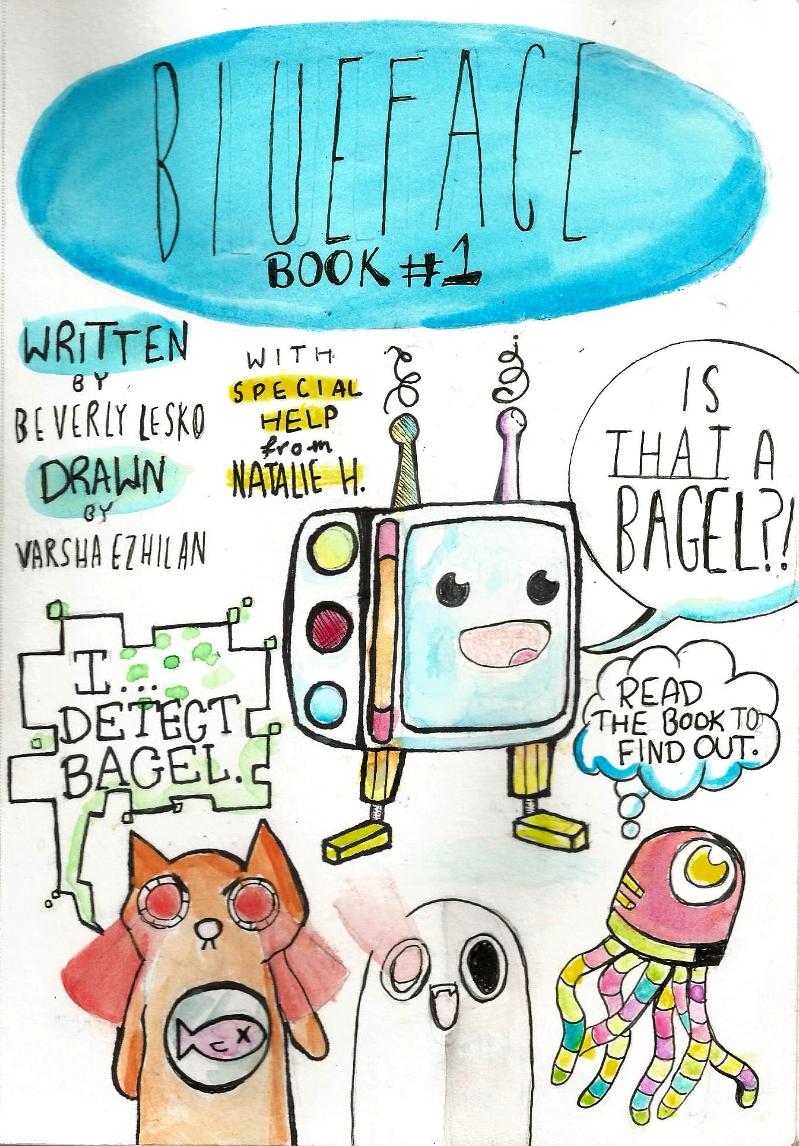 BLUEFACE
BOOK #1
WRITTEN
BY
BEVERLY LESKO
DRAWN
BY
VARSHA EZHILAN
WITH
SPECIAL
HELP
from
NATALIE H.
IS
THAT A
BAGEL?!
I...
DETECT
BAGEL.
READ
THE BOOK TO
FIND OUT.